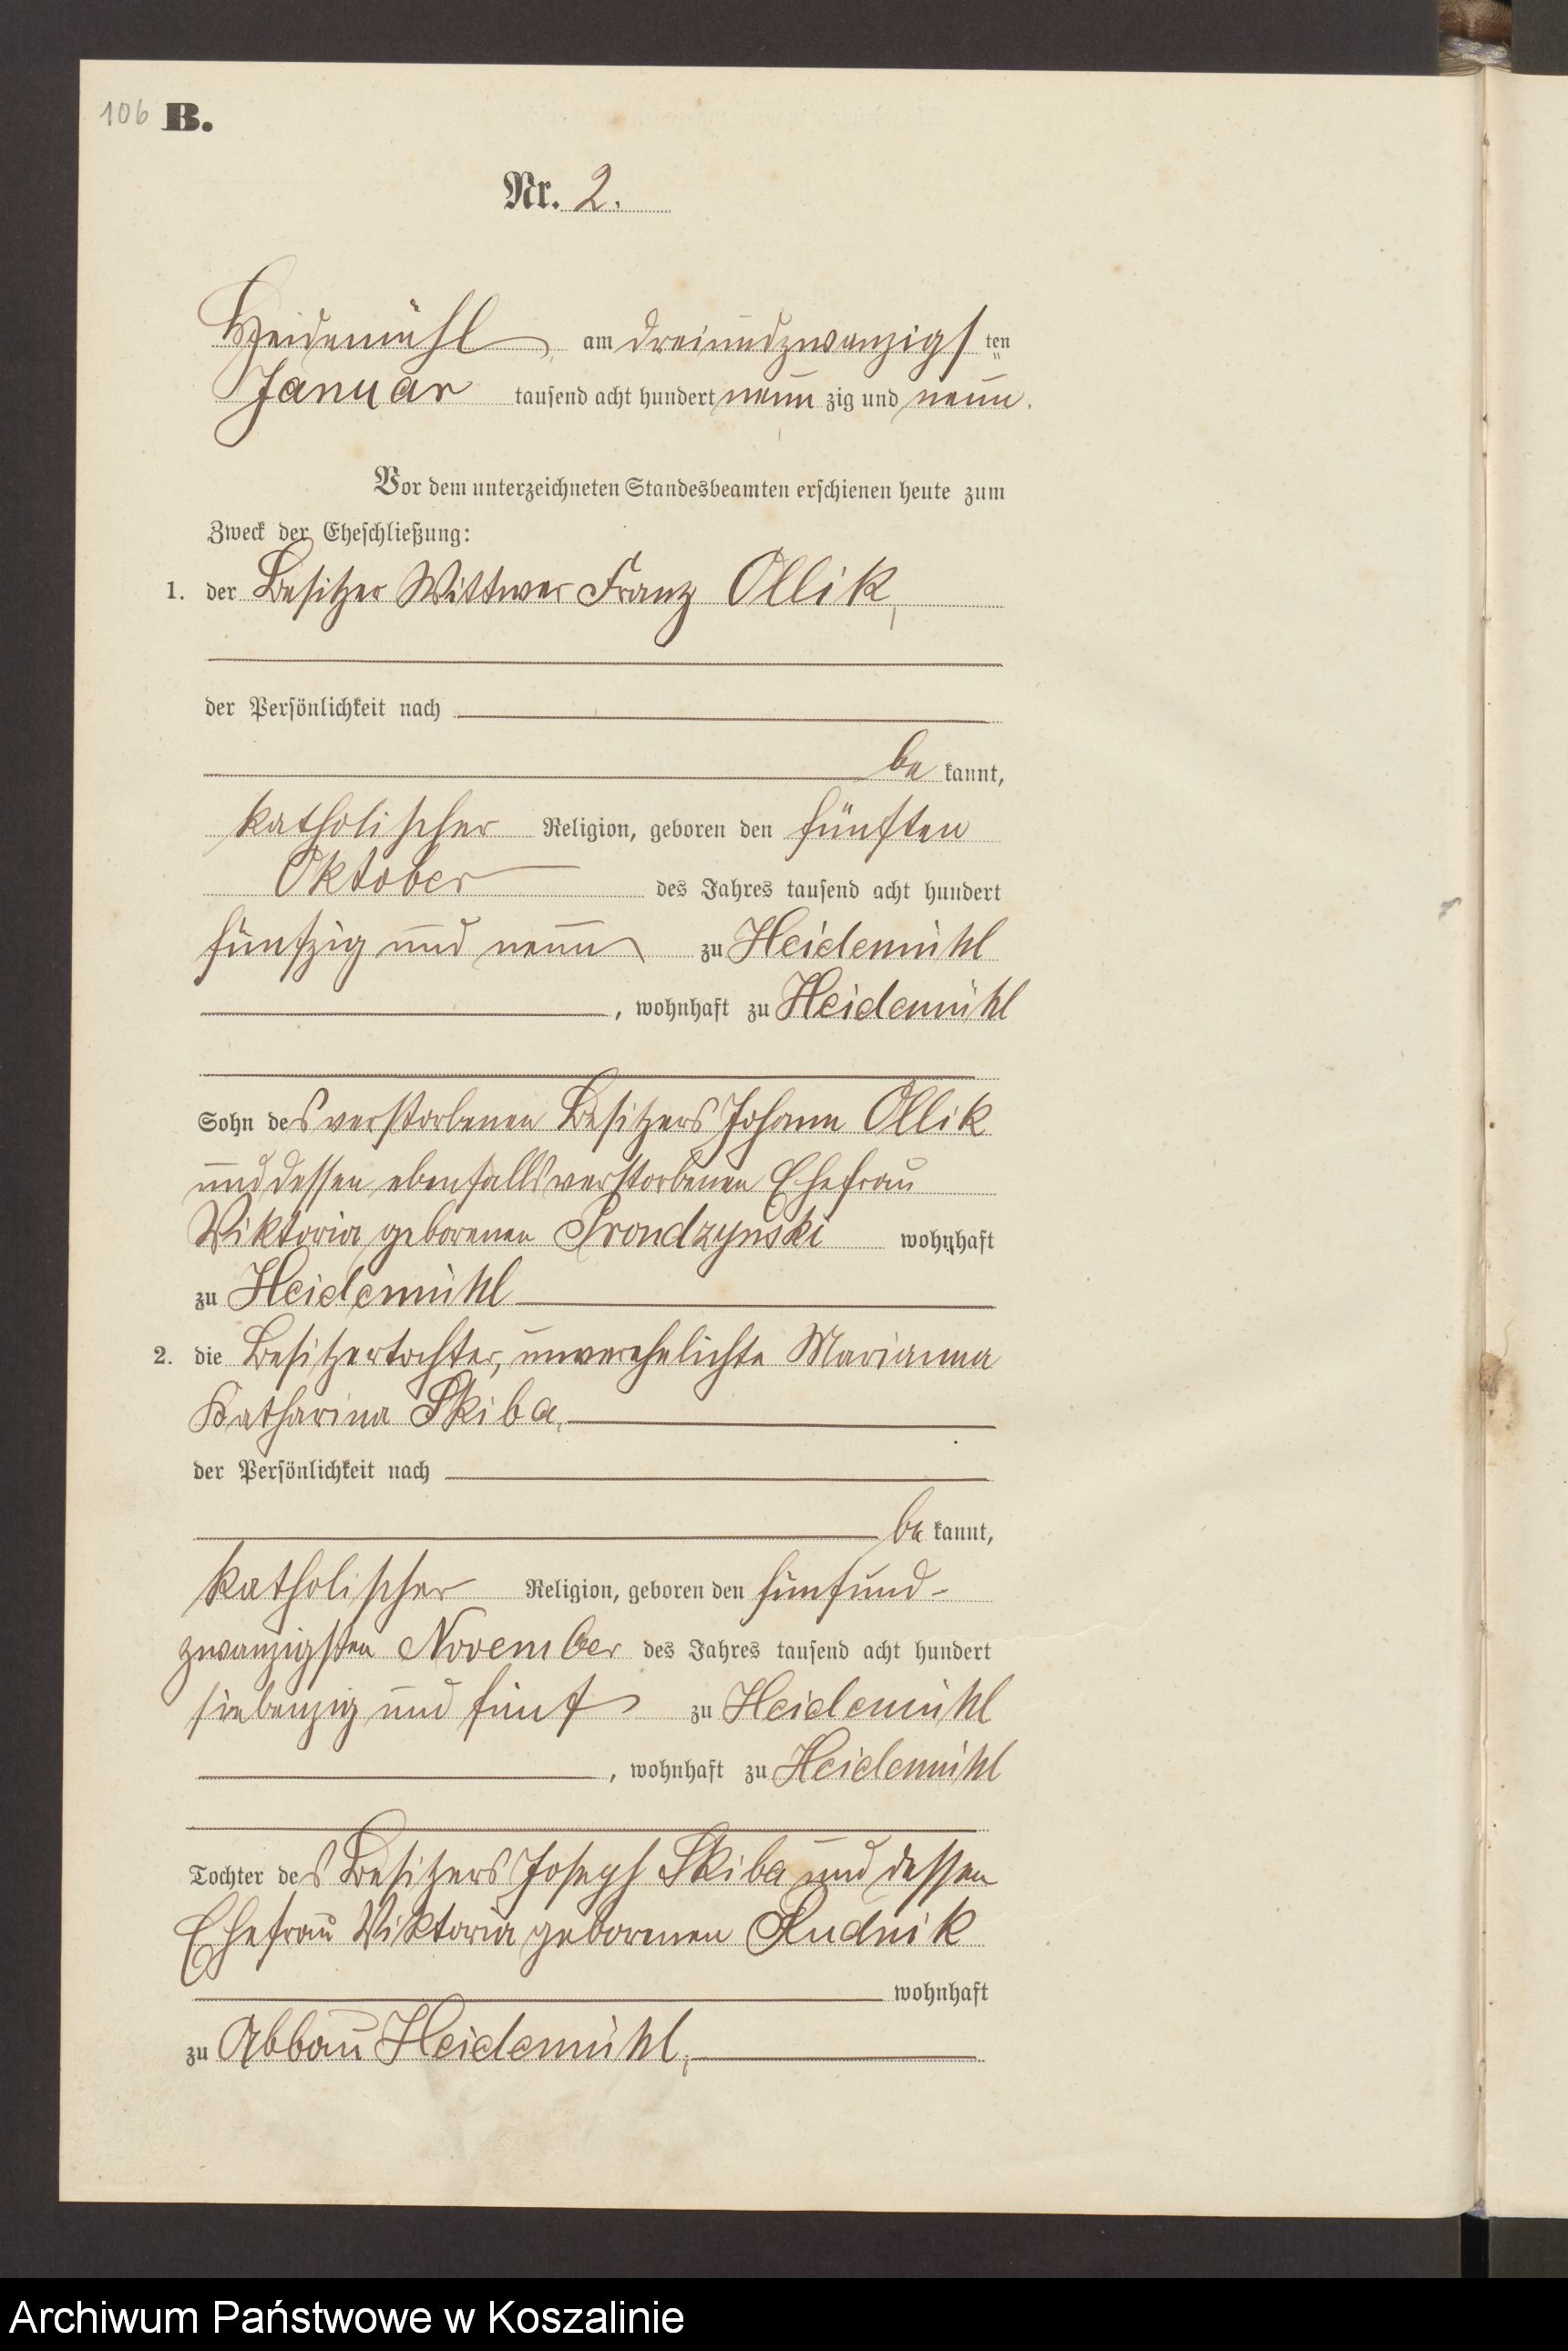 106 B.
Nr. 2.
Heidemühl am dreiundzwanzigsten
Januar tausend acht hundert neunzig und neun.
Vor dem unterzeichneten Standesbeamten erschienen heute zum
Zweck der Eheschließung:
1. der Besitzer Wittwer Franz Ollik,
der Persönlichkeit nach
bekannt,
katholischer Religion, geboren den fünften
Oktober des Jahres tausend acht hundert
fünfzig und neun zu Heidemühl
, wohnhaft zu Heidemühl
Sohn des verstorbenen Besitzers Johann Ollik
und dessen ebenfalls verstorbenen Ehefrau
Viktoria geborenen Prondzynski wohnhaft
zu Heidemühl
2. die Besitzertochter, unverehelichte Marianna
Katharina Skiba,
der Persönlichkeit nach
bekannt,
katholischer Religion, geboren den fünfund-
zwanzigsten November des Jahres tausend acht hundert
siebenzig und fünf zu Heidemühl
, wohnhaft zu Heidemühl
Tochter des Besitzers Joseph Skiba und dessen
Ehefrau Viktoria geborenen Rudnik
wohnhaft
zu Abbau Heidemühl,
Archiwum Państwowe w Koszalinie